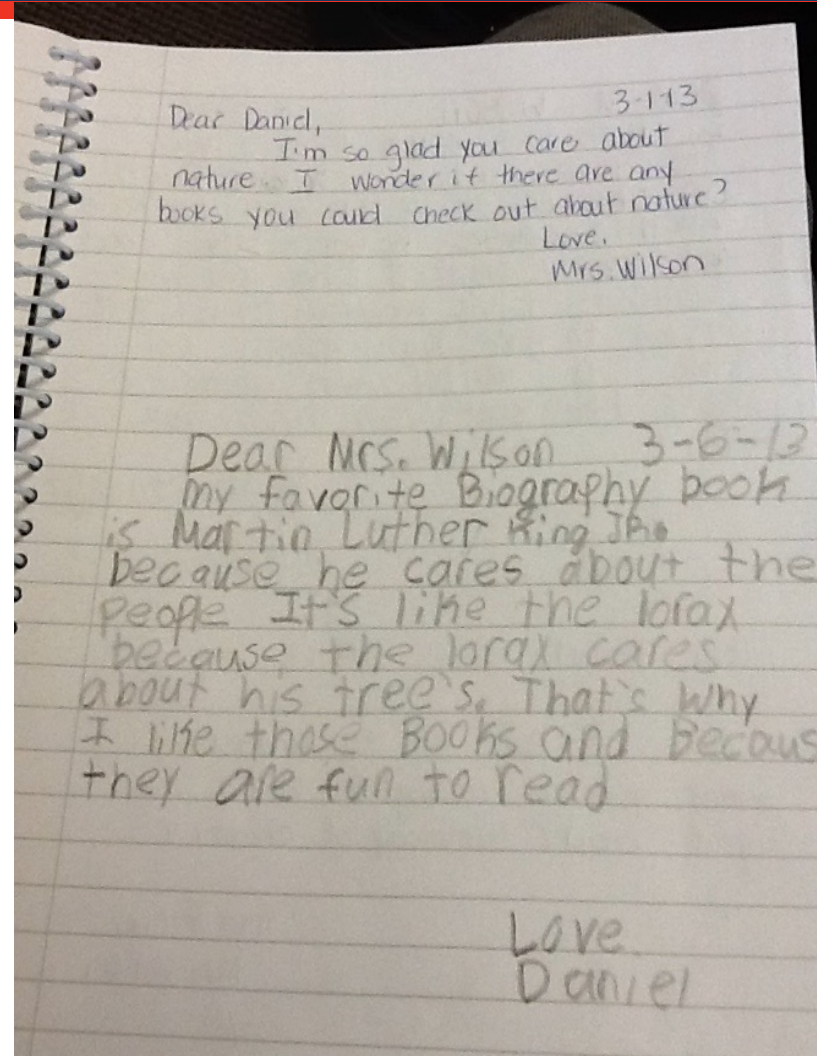 3-1-13
Dear Daniel,
I'm so glad you care about
nature. I wonder if there are any
books you could check out about nature?
Love,
Mrs. Wilson
Dear Mrs. Wilson 3-6-13
my favorite Biography book
is Martin Luther King JR.
because he cares about the
people It's like the lorax
because the lorax cares
about his tree's. That's Why
I like those Books and Becaus
they are fun to read
Love
Daniel